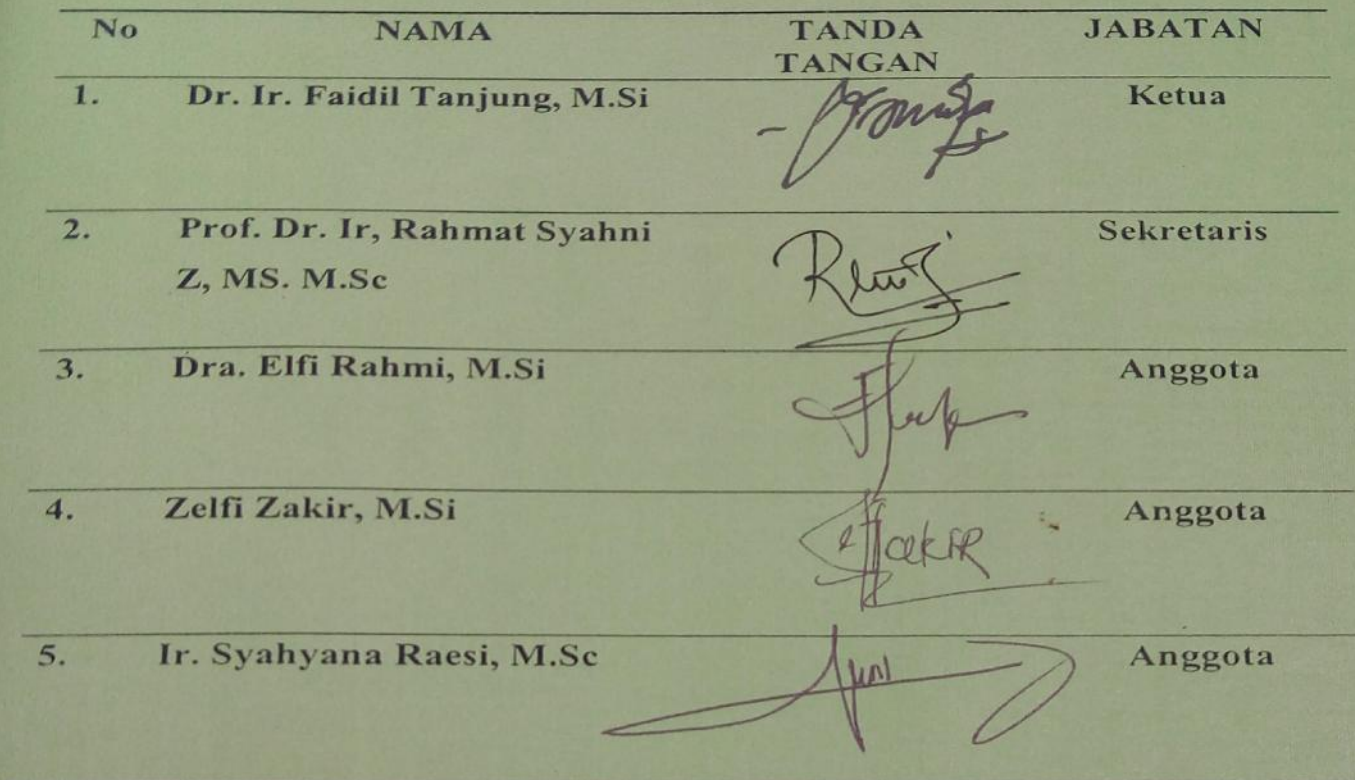 No NAMA TANDA TANGAN JABATAN
1. Dr. Ir. Faidil Tanjung, M.Si Ketua
2. Prof. Dr. Ir, Rahmat Syahni Sekretaris
Z, MS. M.Sc
3. Dra. Elfi Rahmi, M.Si Anggota
4. Zelfi Zakir, M.Si Anggota
5. Ir. Syahyana Raesi, M.Sc Anggota